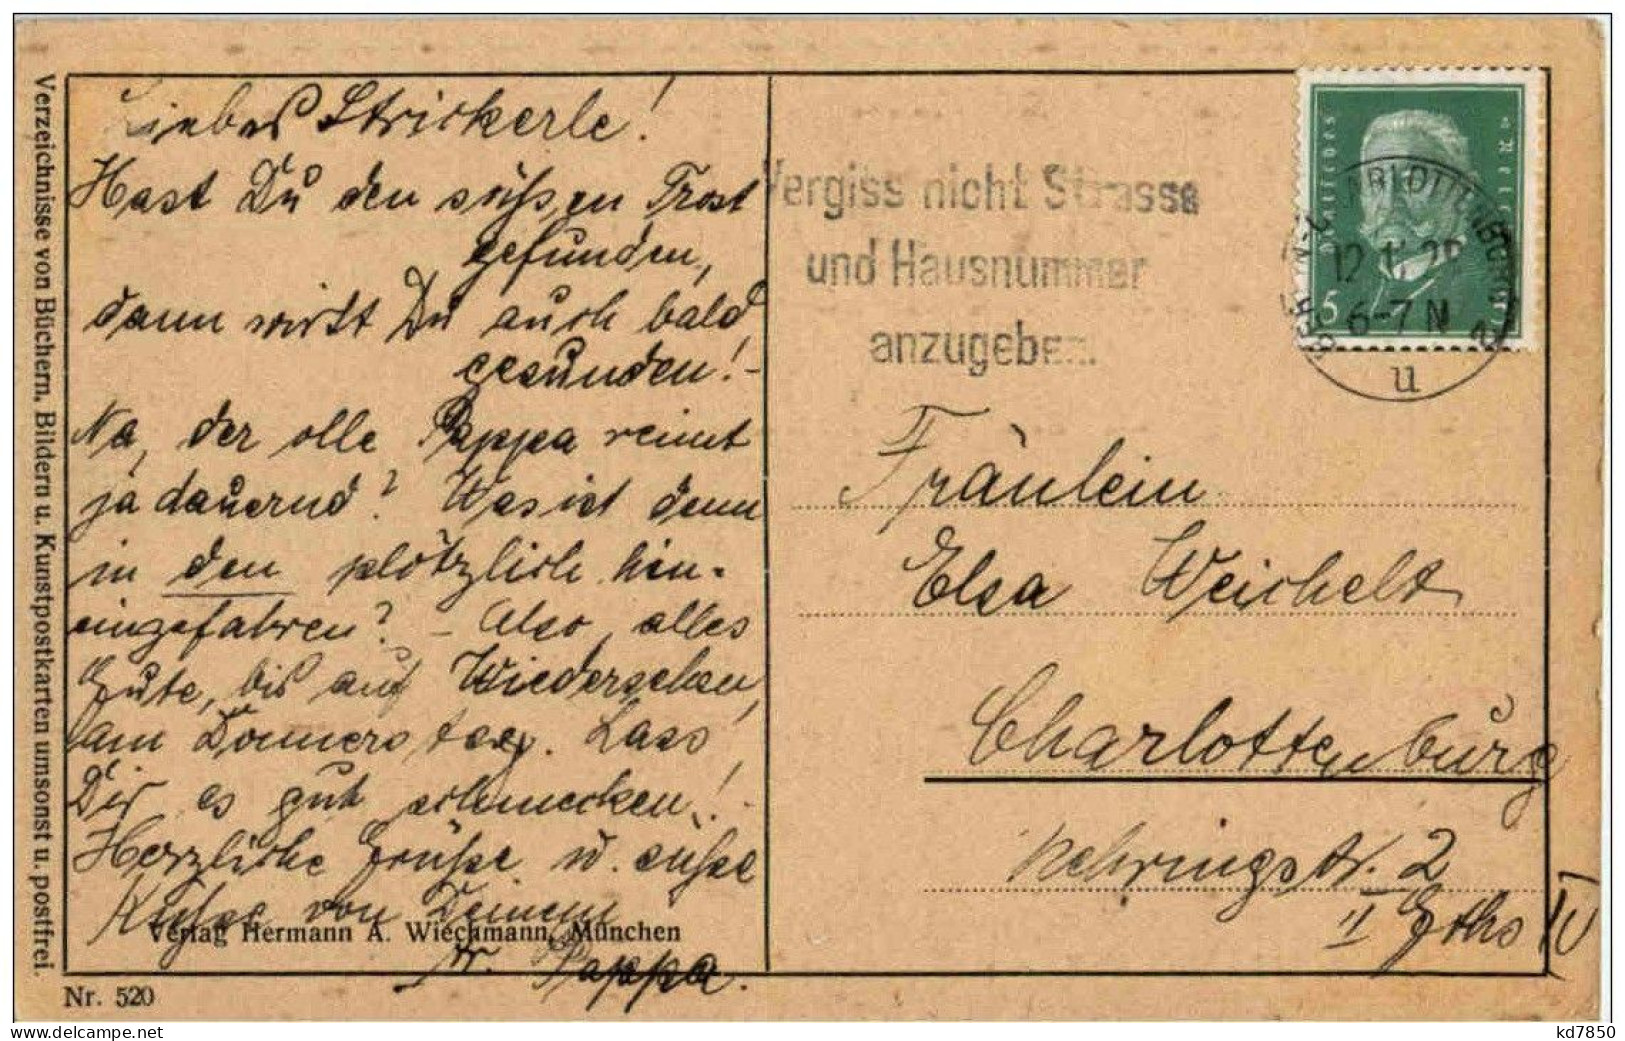 Verzeichnisse von Büchern, Bildern u. Kunstpostkarten umsonst u. postfrei.
Liebes Strickerle!
Hast Du den süßen Trost
gefunden,
dann wirst Du auch bald
gesunden! -
Na, der olle Pappa reimt
ja dauernd? Was ist denn
in den plötzlich hin-
eingefahren? - Also, alles
Gute, bis auf Wiedersehen,
am Donnerstag. Lass
Dir es gut schmecken!
Herzliche Grüße u. süße
Küsse von Deinem
Pappa.
Verlag Hermann A. Wiechmann, München
Nr. 520
Vergiss nicht Strasse
und Hausnummer
anzugeben.
Deutsches Reich
5
BERLIN-CHARLOTTENBURG 2
6-7 N
u
Fräulein
Elsa Weichelt
Charlottenburg
Nehringstr. 2
II Gths IV
kd7850